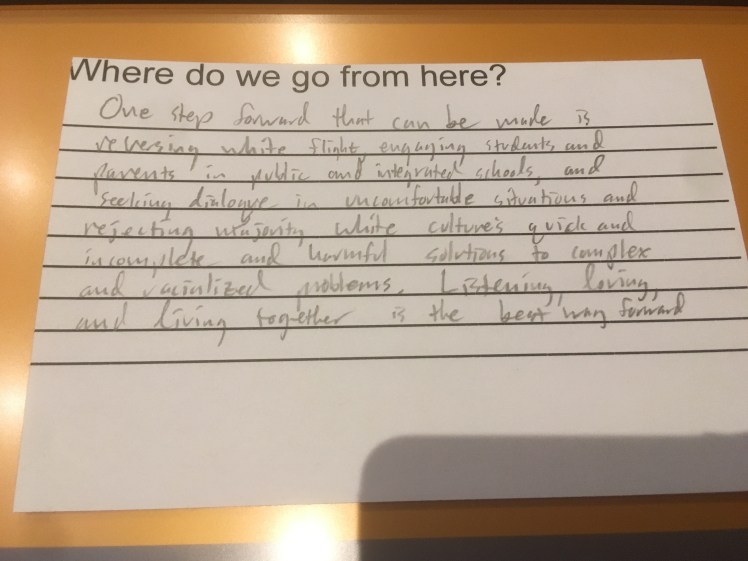 Where do we go from here?
One step forward that can be made is
reversing white flight engaging students and
parents in public and integrated schools, and
seeking dialogue in uncomfortable situations and
rejecting majority white culture's quick and
incomplete and harmful solutions to complex
and racialized problems. Listening, loving,
and living together is the best way forward